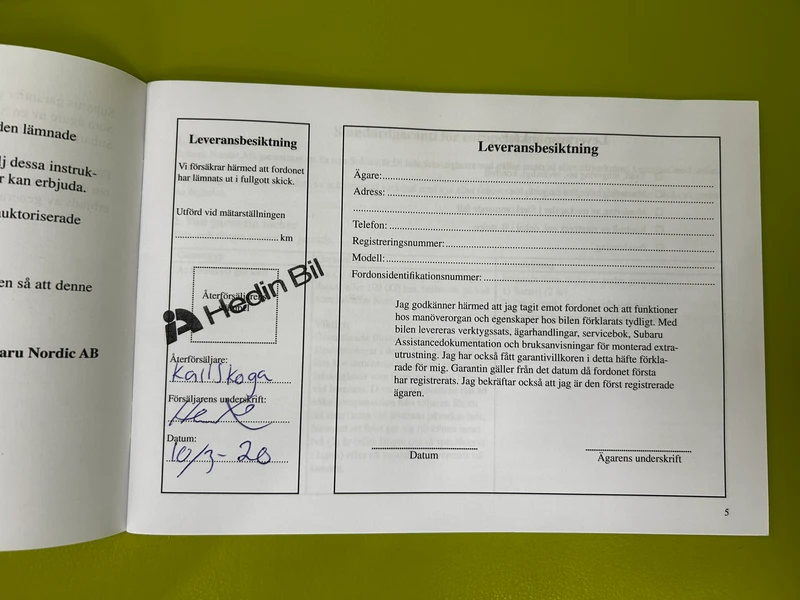 den lämnade
lj dessa instruk-
r kan erbjuda.
auktoriserade
en så att denne
aru Nordic AB
Leveransbesiktning
Vi försäkrar härmed att fordonet
har lämnats ut i fullgott skick.
Utförd vid mätarställningen
km
Hedin Bil
Återförsäljare:
Karlskoga
Försäljarens underskrift:
Datum:
10/3-20
Leveransbesiktning
Ägare:
Adress:
Telefon:
Registreringsnummer:
Modell:
Fordonsidentifikationsnummer:
Jag godkänner härmed att jag tagit emot fordonet och att funktioner
hos manöverorgan och egenskaper hos bilen förklarats tydligt. Med
bilen levereras verktygssats, ägarhandlingar, servicebok, Subaru
Assistancedokumentation och bruksanvisningar för monterad extra-
utrustning. Jag har också fått garantivillkoren i detta häfte förkla-
rade för mig. Garantin gäller från det datum då fordonet första
har registrerats. Jag bekräftar också att jag är den först registrerade
ägaren.
Datum
Ägarens underskrift
5